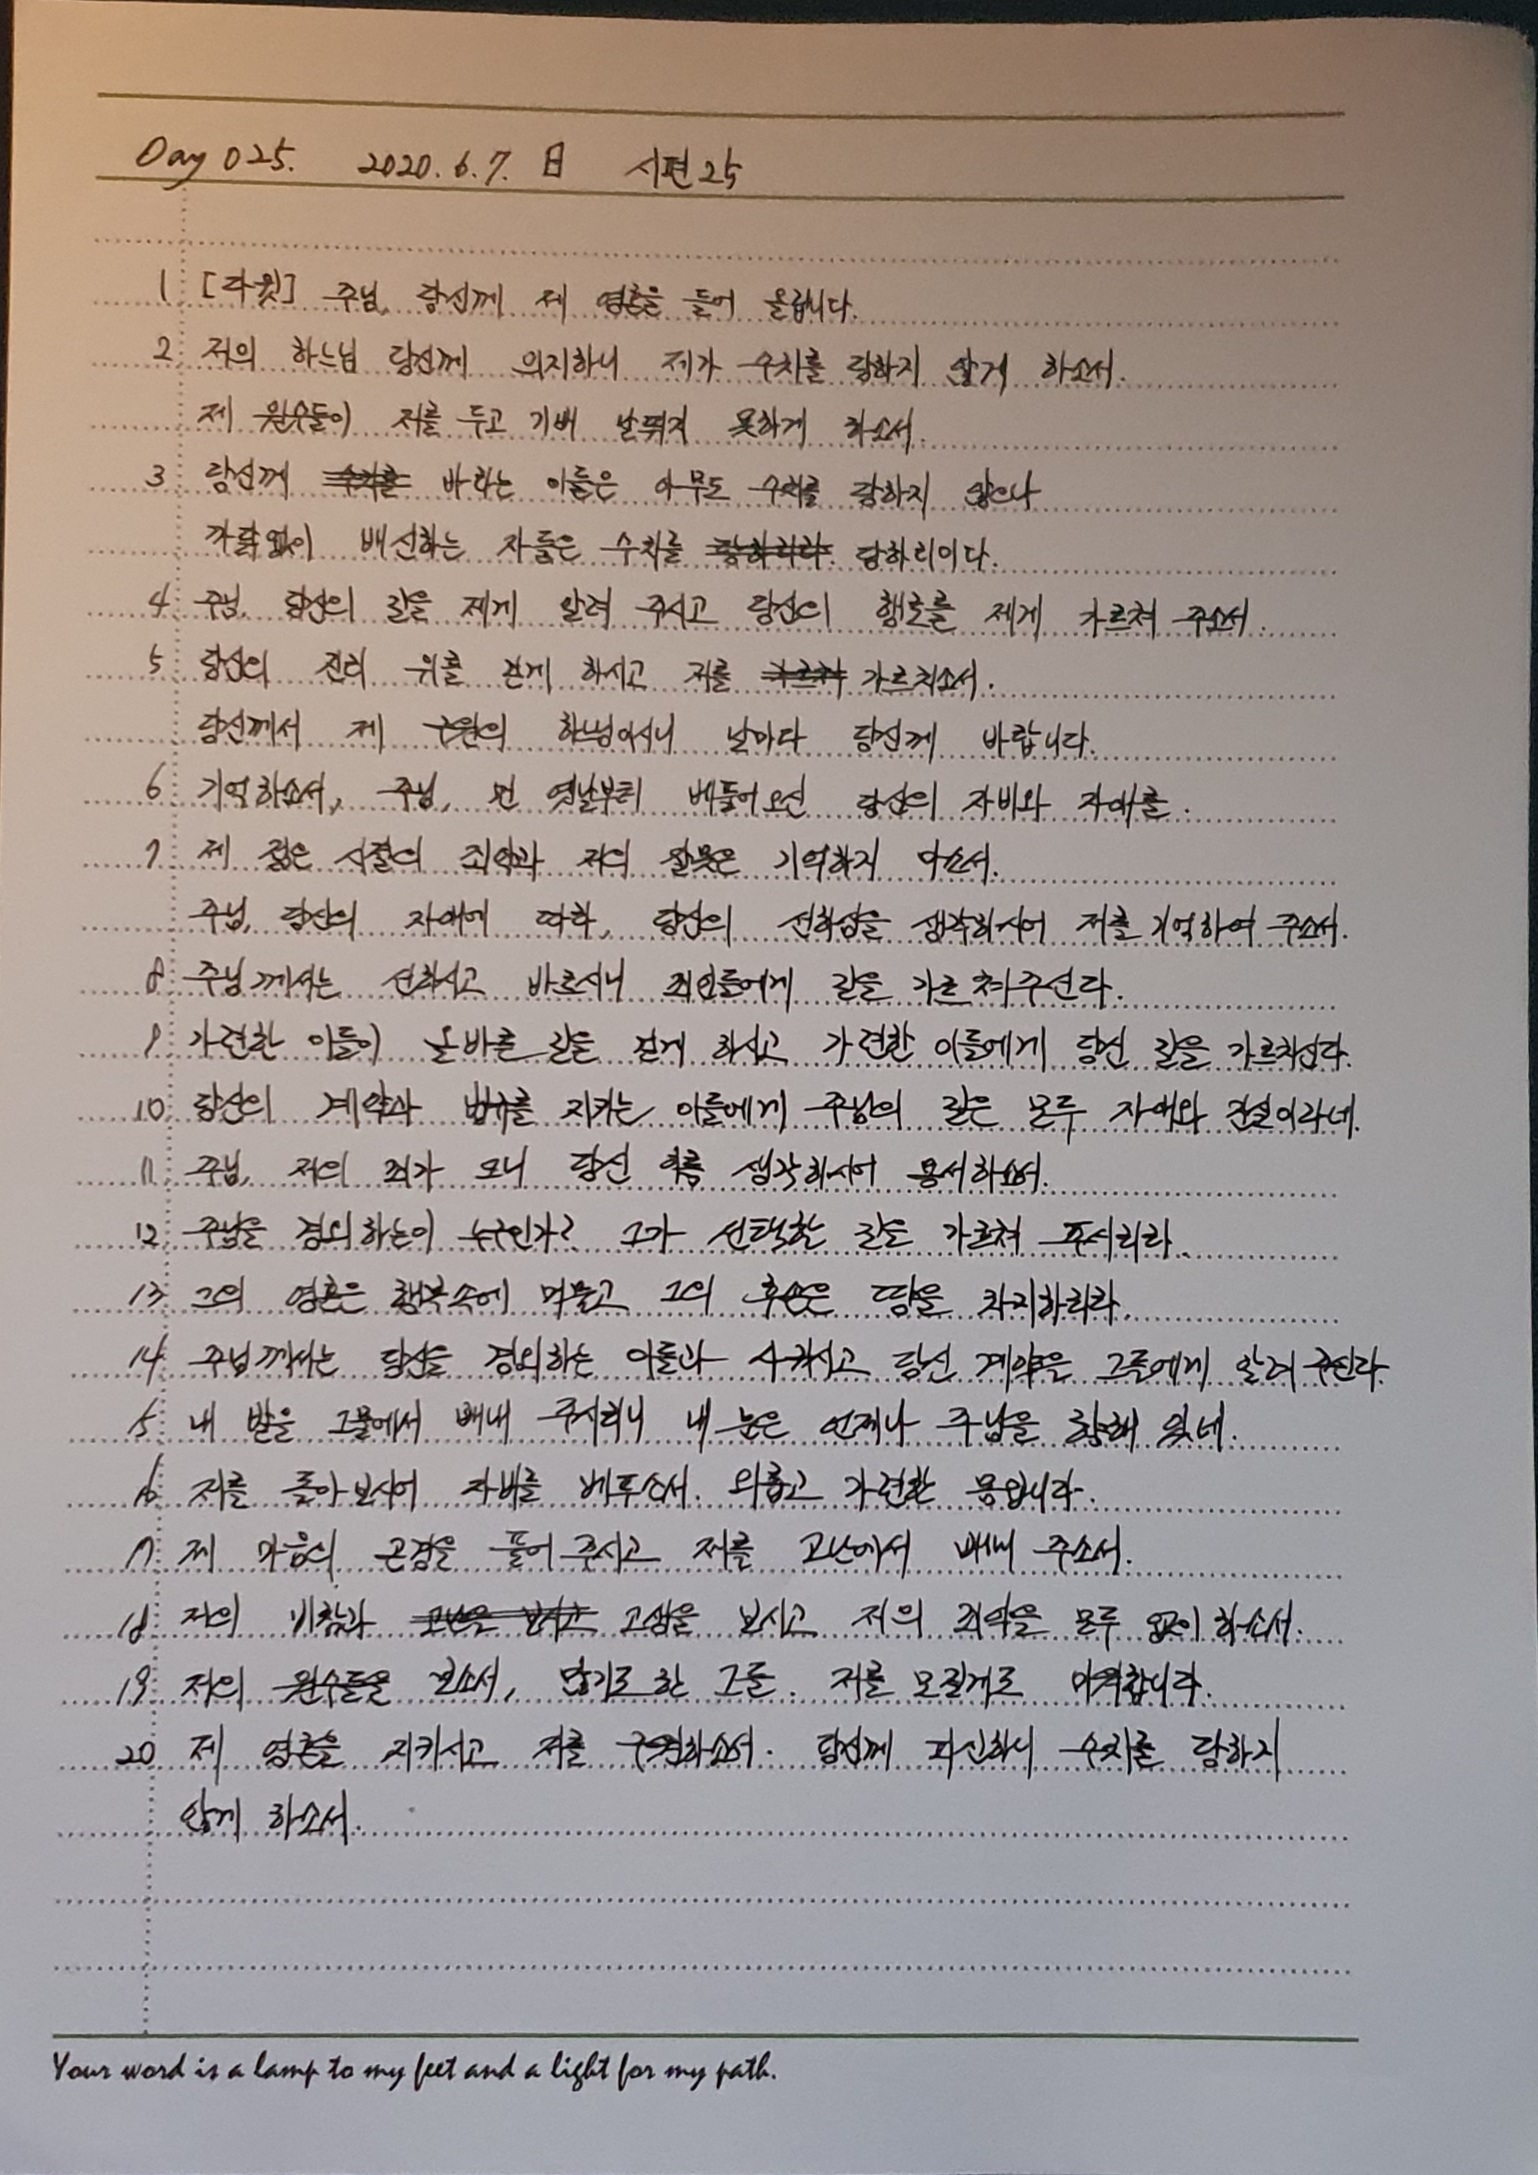 Day 025. 2020.6.7. 日 시편 25
1 [다윗] 주님, 당신께 제 영혼을 들어 올립니다.
2 저의 하느님 당신께 의지하니 제가 수치를 당하지 않게 하소서.
제 원수들이 저를 두고 기뻐 날뛰지 못하게 하소서.
3 당신께 수치를 바라는 이들은 아무도 수치를 당하지 않으나
까닭없이 배신하는 자들은 수치를 당하리라. 당하리이다.
4 주님, 당신의 길을 제게 알려 주시고 당신의 행로를 제게 가르쳐 주소서.
5 당신의 진리 위를 걷게 하시고 저를 가르쳐 가르치소서.
당신께서 제 구원의 하느님이시니 날마다 당신께 바랍니다.
6 기억하소서, 주님, 먼 옛날부터 베풀어오신 당신의 자비와 자애를.
7 제 젊은 시절의 죄악과 저의 잘못은 기억하지 마소서.
주님, 당신의 자애에 따라, 당신의 선하심을 생각하시어 저를 기억하여 주소서.
8 주님께서는 선하시고 바르시니 죄인들에게 길을 가르쳐주신다.
9 가련한 이들이 올바른 길을 걷게 하시고 가련한 이들에게 당신 길을 가르치신다.
10 당신의 계약과 법규를 지키는 이들에게 주님의 길은 모두 자애와 진실이라네.
11 주님, 저의 죄가 크니 당신 이름 생각하시어 용서하소서.
12 주님을 경외하는이 누구인가? 그가 선택할 길을 가르쳐 주시리라.
13 그의 영혼은 행복속에 머물고 그의 후손은 땅을 차지하리라.
14 주님께서는 당신을 경외하는 이들과 사귀시고 당신 계약을 그들에게 알려 주신다.
15 내 발을 그물에서 빼내 주시리니 내 눈은 언제나 주님을 향해 있네.
16 저를 돌아보시어 자비를 베푸소서. 외롭고 가련한 몸입니다.
17 제 마음의 곤경을 풀어 주시고 저를 고난에서 빼내 주소서.
18 저의 비참과 고난을 보시고 고생을 보시고 저의 죄악을 모두 없이 하소서.
19 저의 원수들을 보소서, 많기도 한 그들. 저를 모질게도 미워합니다.
20 제 영혼을 지키시고 저를 구원하소서. 당신께 피신하니 수치를 당하지
않게 하소서.
Your word is a lamp to my feet and a light for my path.